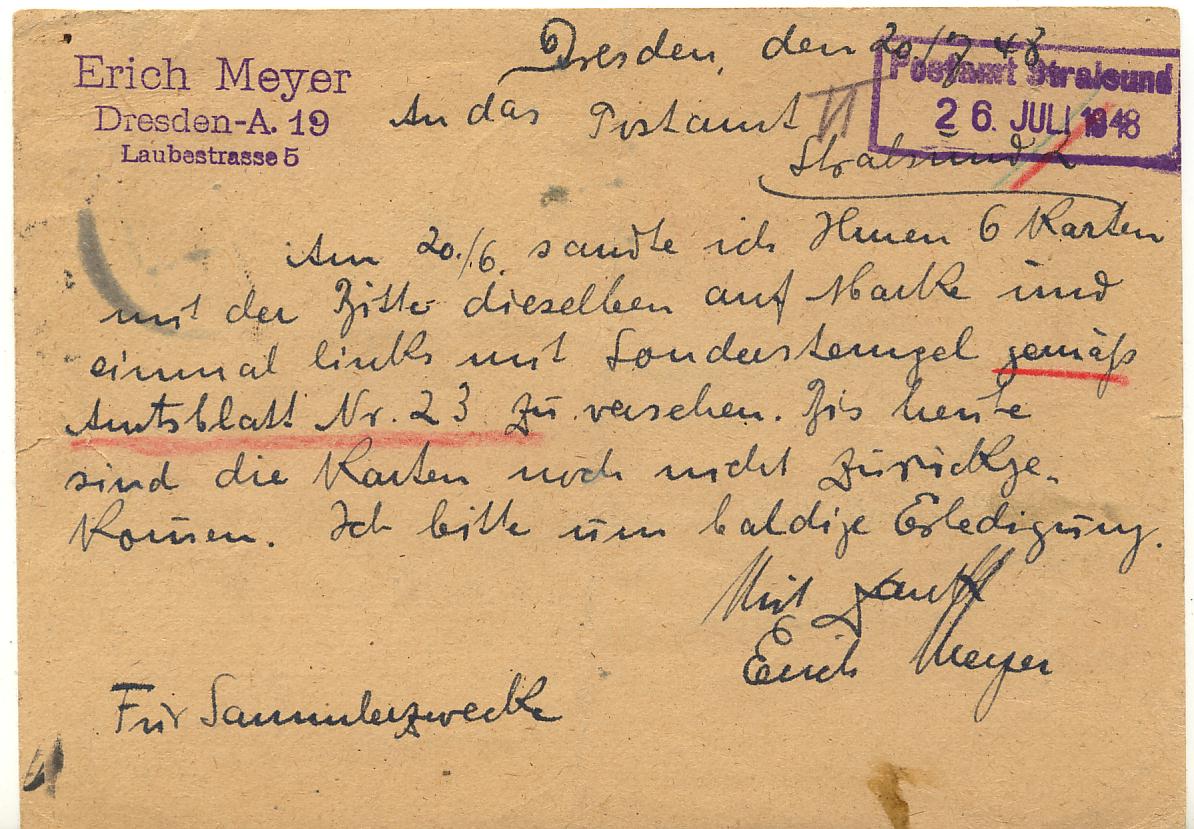 Erich Meyer
Dresden-A. 19
Laubestrasse 5
Dresden, den 20/7 48
Postamt Stralsund
26. JULI 1948
An das Postamt II
Stralsund
Am 20./6. sandte ich Ihnen 6 Karten
mit der Bitte dieselben auf Marke und
einmal links mit Sonderstempel gemäß
Amtsblatt Nr. 23 zu versehen. Bis heute
sind die Karten noch nicht zurückge-
kom̄en. Ich bitte um baldige Erledigung.
Mit
Erich Meyer
Für Sammlerzwecke